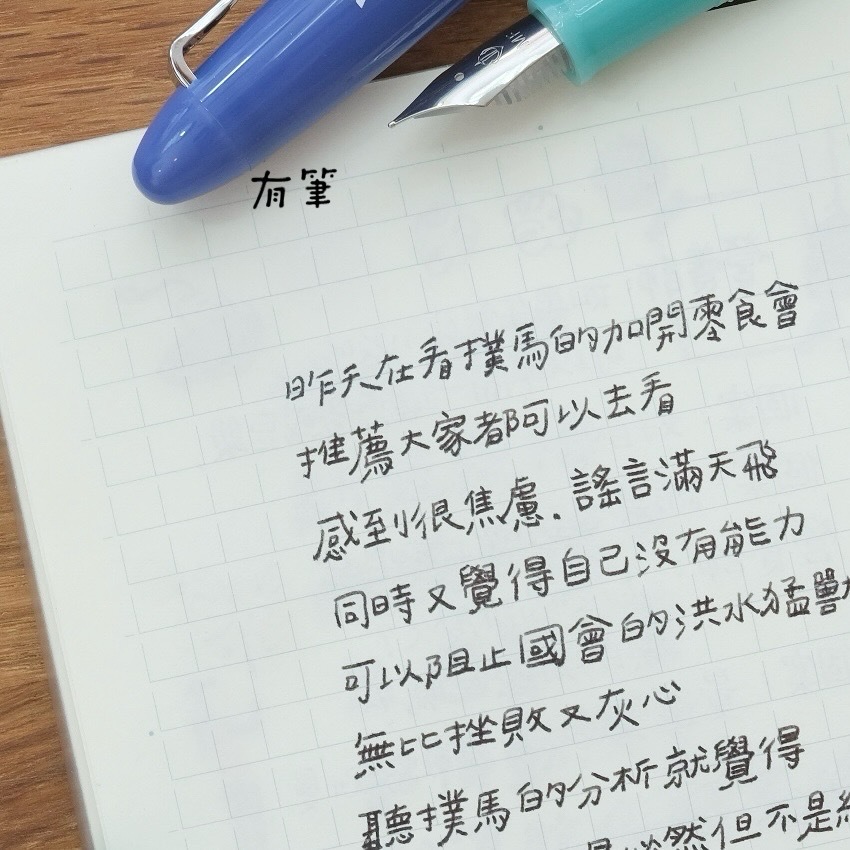 有筆
昨天在看撲馬的加開零食會
推薦大家都可以去看
感到很焦慮．謠言滿天飛
同時又覺得自己沒有能力
可以阻止國會的洪水猛獸
無比挫敗又灰心
聽撲馬的分析就覺得
然但不是